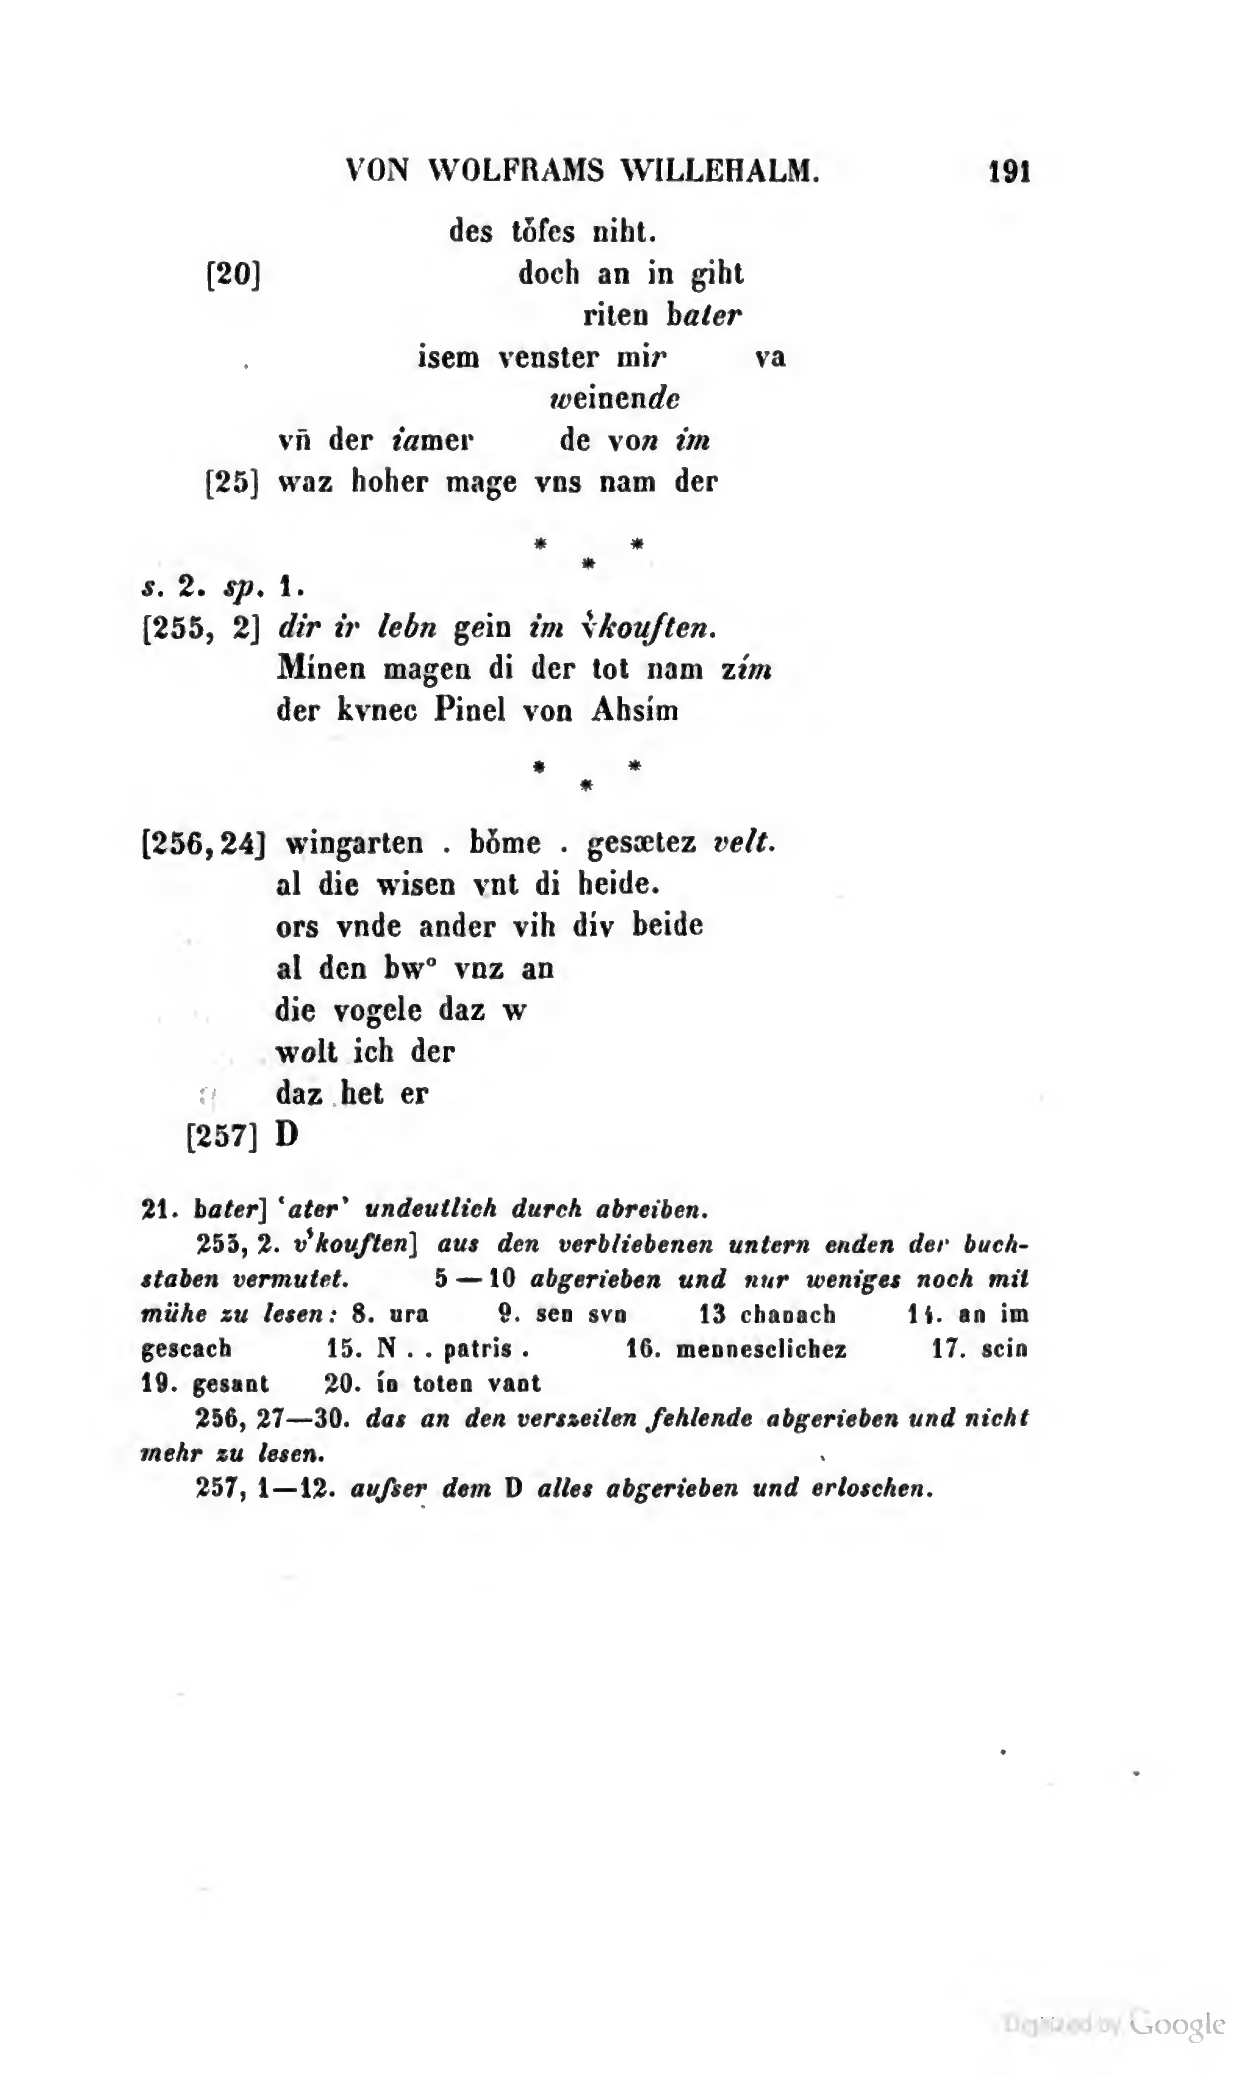 VON WOLFRAMS WILLEHALM. 191
des tǒfes niht.
[20] doch an in giht
riten bater
isem venster mir va
weinende
vn̄ der iamer de von im
[25] waz hoher mage vns nam der
* * *
s. 2. sp. 1.
[255, 2] dir ir lebn gein im v̓kouften.
Mínen magen di der tot nam zím
der kvnec Pinel von Ahsím
* * *
[256, 24] wingarten . bǒme . gesætez velt.
al die wisen vnt di heide.
ors vnde ander vih dív beide
al den bwº vnz an
die vogele daz w
wolt ich der
daz het er
[257] D
21. bater] ‘ater’ undeutlich durch abreiben.
255, 2. v̓kouften] aus den verbliebenen untern enden der buch-
staben vermutet. 5—10 abgerieben und nur weniges noch mit
mühe zu lesen: 8. ura 9. sen svn 13 chanach 14. an im
gescach 15. N . . patris . 16. mennesclichez 17. scin
19. gesant 20. ín toten vant
256, 27—30. das an den verszeilen fehlende abgerieben und nicht
mehr zu lesen.
257, 1—12. aufser dem D alles abgerieben und erloschen.
Digitized by Google